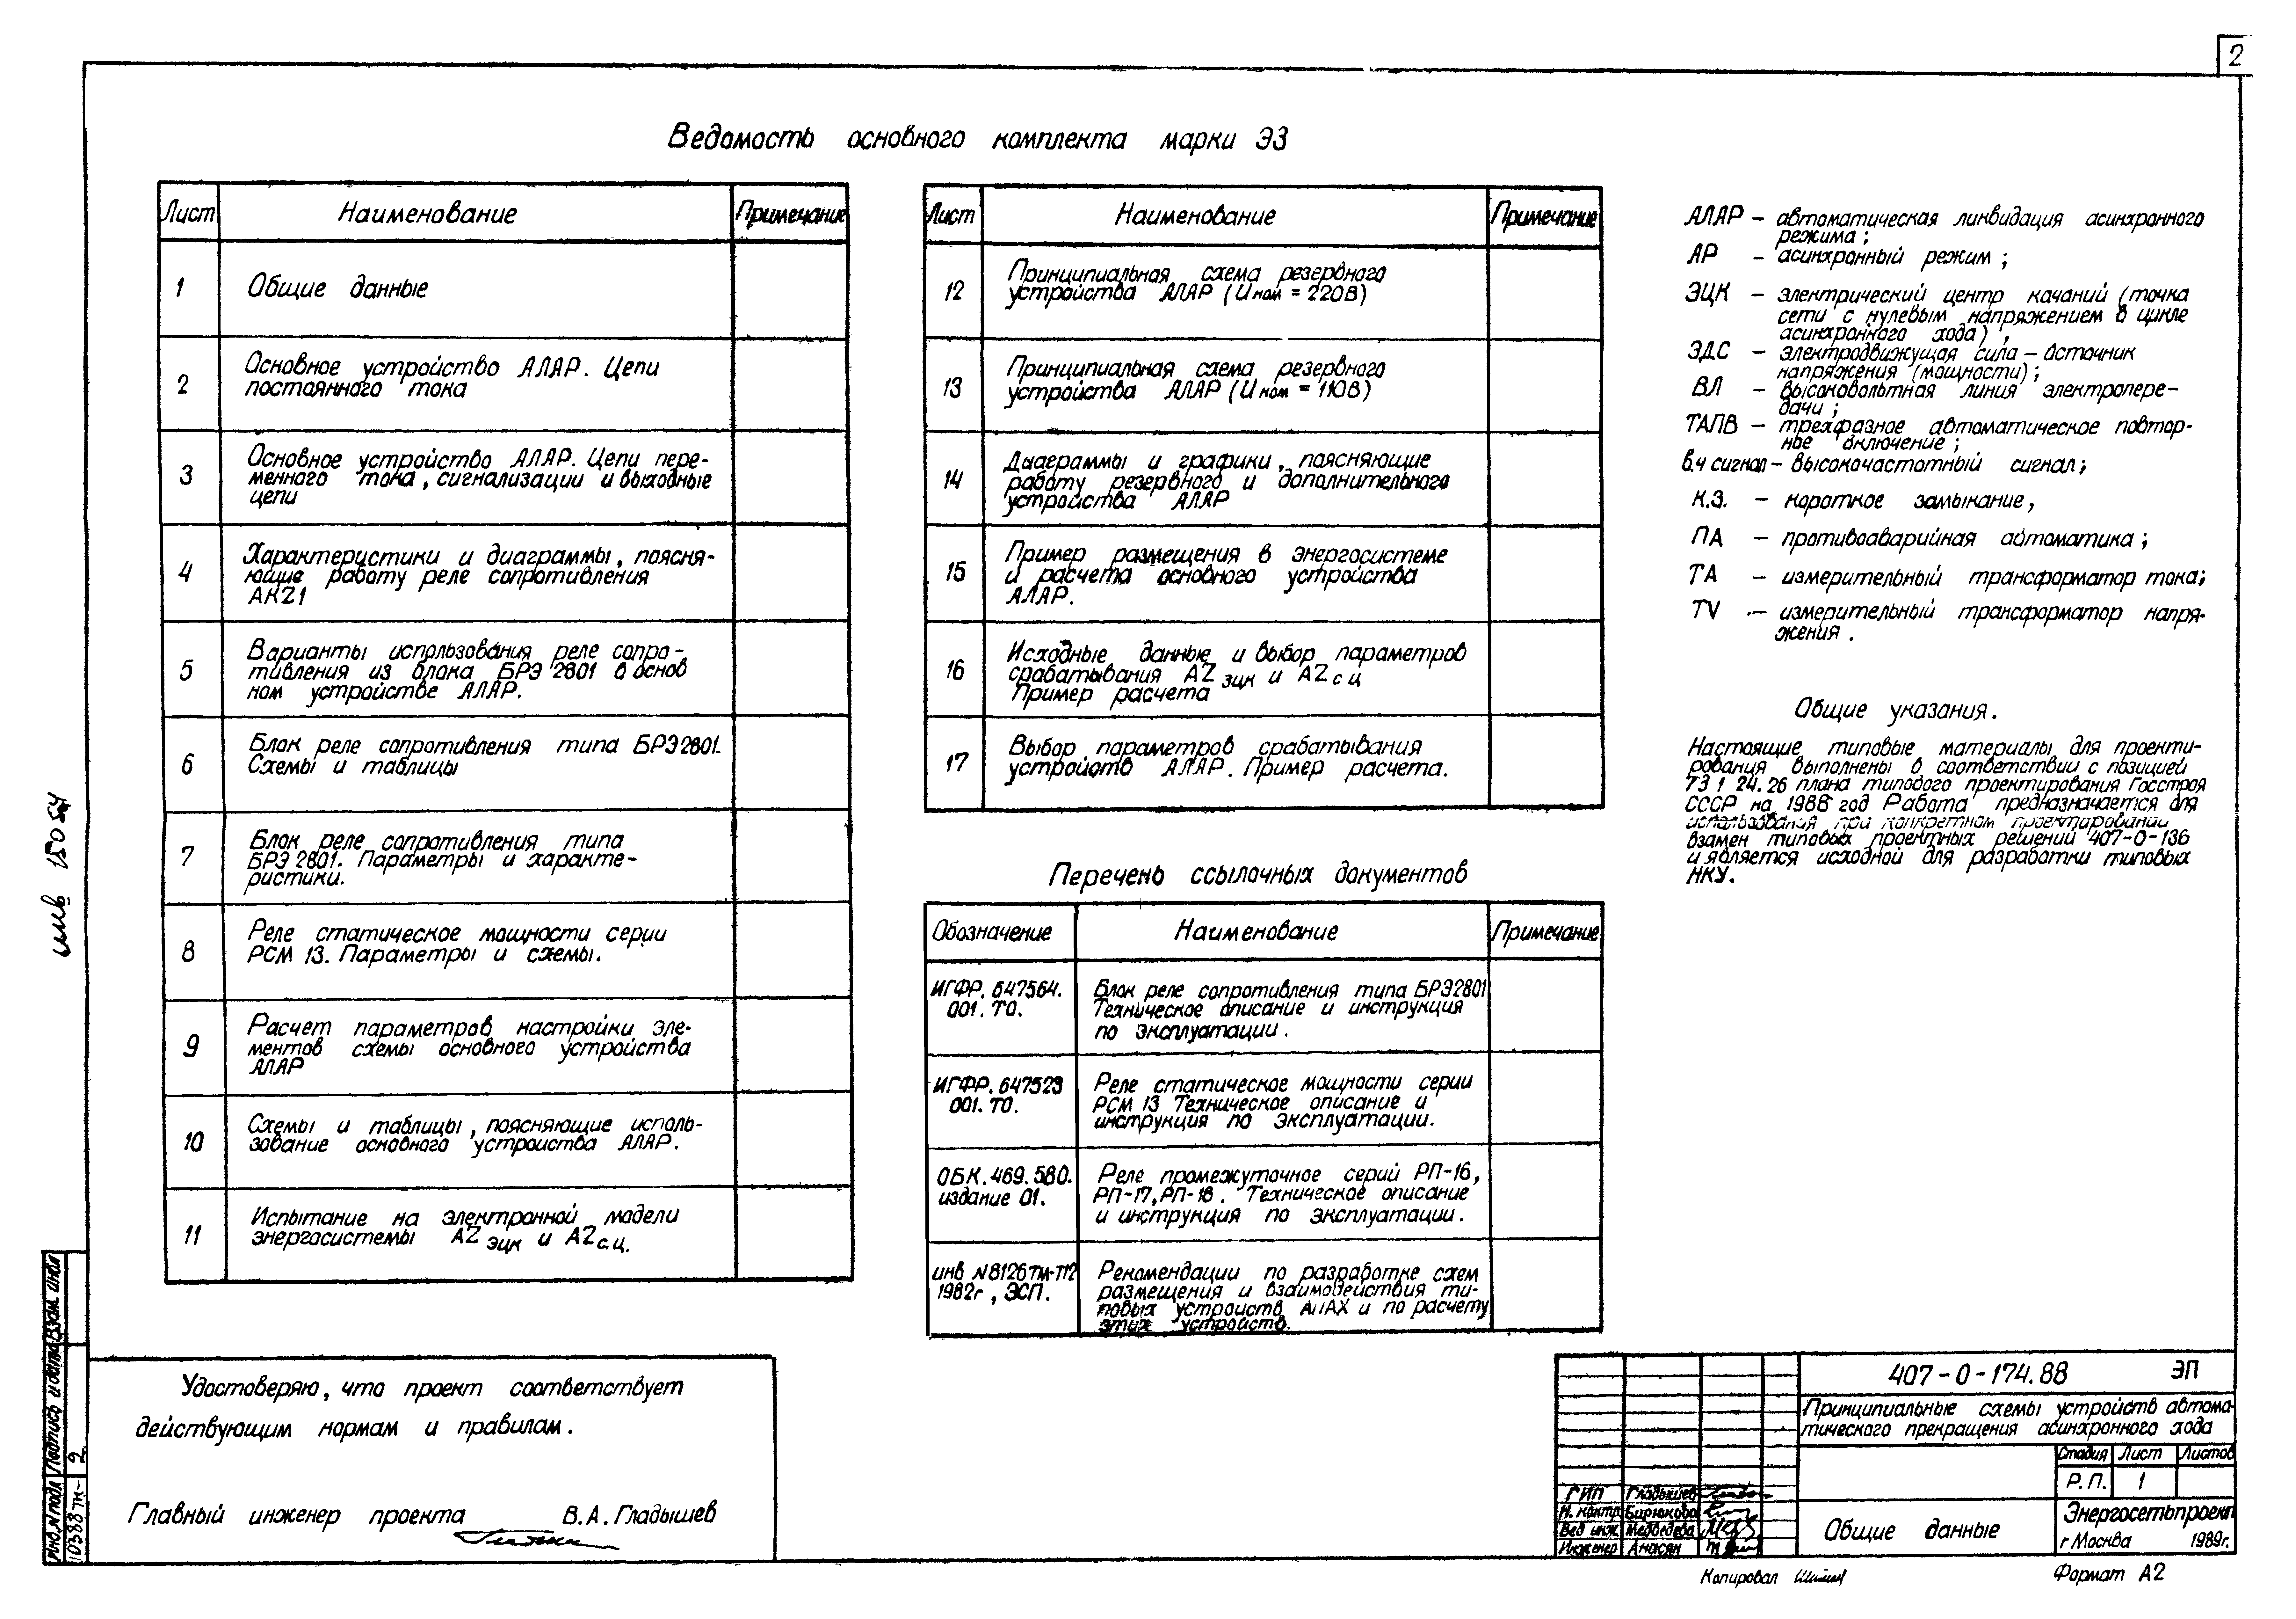 2
Ведомость основного комплекта марки ЭЗ
Лист Наименование Примечание
1 Общие данные
2 Основное устройство АЛАР. Цепи
постоянного тока
3 Основное устройство АЛАР. Цепи пере-
менного тока, сигнализации и выходные
цепи
4 Характеристики и диаграммы, поясня-
ющие работу реле сопротивления
АКZ1
5 Варианты использования реле сопро-
тивления из блока БРЭ 2801 в основ
ном устройстве АЛАР.
6 Блок реле сопротивления типа БРЭ2801.
Схемы и таблицы
7 Блок реле сопротивления типа
БРЭ 2801. Параметры и характе-
ристики.
8 Реле статическое мощности серии
РСМ 13. Параметры и схемы.
9 Расчет параметров настройки эле-
ментов схемы основного устройства
АЛАР
10 Схемы и таблицы, поясняющие исполь-
зование основного устройства АЛАР.
11 Испытание на электронной модели
энергосистемы АZ эцк и АZ с.ц.
Лист Наименование Примечание
12 Принципиальная схема резервного
устройства АЛАР (Uном = 220В)
13 Принципиальная схема резервного
устройства АЛАР (Uном = 110В)
14 Диаграммы и графики, поясняющие
работу резервного и дополнительного
устройства АЛАР
15 Пример размещения в энергосистеме
и расчета основного устройства
АЛАР.
16 Исходные данные и выбор параметров
срабатывания АZ эцк и АZ с ц
Пример расчета
17 Выбор параметров срабатывания
устройств АЛАР. Пример расчета.
Перечень ссылочных документов
Обозначение Наименование Примечание
ИГФР. 647564. Блок реле сопротивления типа БРЭ2801
001. ТО. Техническое описание и инструкция
по эксплуатации.
ИГФР. 647523 Реле статическое мощности серии
001. ТО. РСМ 13 Техническое описание и
инструкция по эксплуатации.
ОБК. 469. 580. Реле промежуточное серий РП-16,
издание 01. РП-17, РП-18. Техническое описание
и инструкция по эксплуатации.
инв №8126ТМ-Т12 Рекомендации по разработке схем
1982г, ЭСП. размещения и взаимодействия ти-
повых устройств АПАХ и по расчету
этих устройств.
АЛАР – автоматическая ликвидация асинхронного
режима;
АР – асинхронный режим;
ЭЦК – электрический центр качаний (точка
сети с нулевым напряжением в цикле
асинхронного хода),
ЭДС – электродвижущая сила – источник
напряжения (мощности);
ВЛ – высоковольтная линия электропере-
дачи;
ТАПВ – трехфазное автоматическое повтор-
ное включение;
в.ч сигнал – высокочастотный сигнал;
К.З. – короткое замыкание,
ПА – противоаварийная автоматика;
ТА – измерительный трансформатор тока;
TV – измерительный трансформатор напря-
жения.
Общие указания.
Настоящие типовые материалы для проекти-
рования выполнены в соответствии с позицией
ТЭ 1 24. 26 плана типового проектирования Госстроя
СССР на 1988 год Работа предназначается для
использования при конкретном проектировании
взамен типовых проектных решений 407-0-136
и является исходной для разработки типовых
НКУ.
Удостоверяю, что проект соответствует
действующим нормам и правилам.
Главный инженер проекта В.А. Гладышев
инв 15054
Инв.№ подл Подпись и дата Взам. инв№
10388ТМ- 2
407-0-174.88 ЭП
Принципиальные схемы устройств автома-
тического прекращения асинхронного хода
Стадия Лист Листов
Р.П. 1
ГИП Гладышев
Н. контр Бирюкова
Вед инж. Медведева
Инженер Анасян
Общие данные
Энергосетьпроект
г Москва 1989г.
Копировал
Формат А2